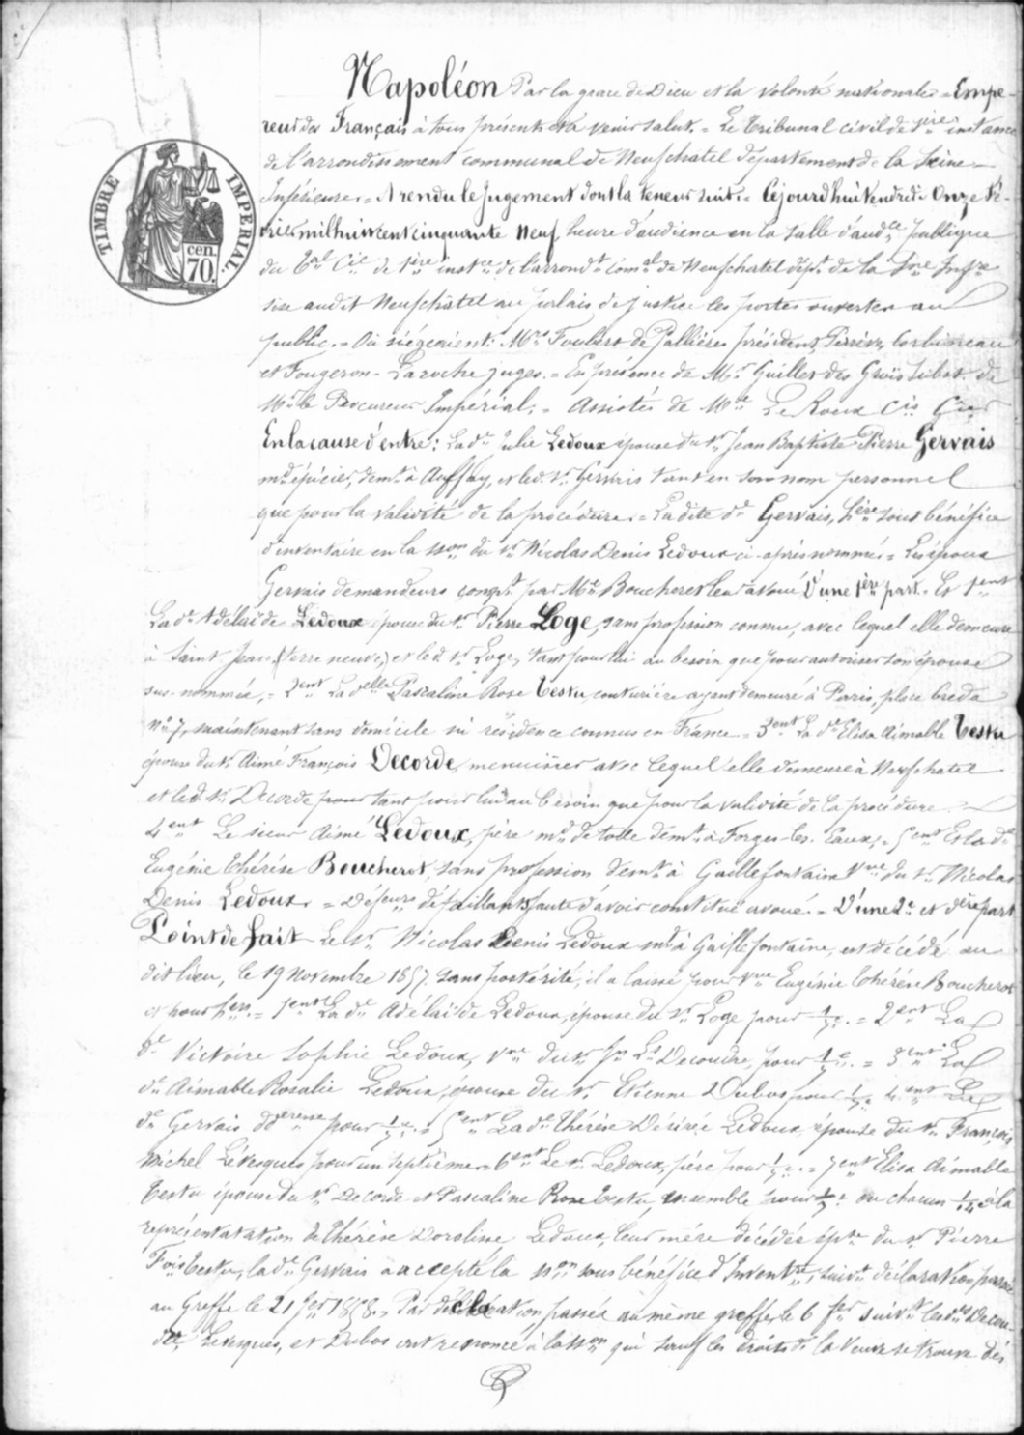 TIMBRE IMPERIAL.
cen. 70.
Napoléon Par la grace de Dieu et la volonté nationale = Empe-
reur des Français à tous présents et à venir salut. = Le Tribunal civil de 1ère instance
de l'arrondissement communal de Neufchatel département de la Seine
Inférieure. = A rendu le Jugement dont la teneur suit. = Cejourd'hui Vendredi Onze Fé-
vrier mil huit cent cinquante neuf, heure d'audience en la salle d'audce publique
du Tal Cil de 1ère instce de l'arrondt comal de Neufchatel dépt de la Sne Infre
sise audit Neufchâtel au palais de justice les portes ouvertes au
public. = Où siégeaient: Mrs Foubert de Pallières président,
et Fougeron-Laroche juges. = En présence de Mr Guillet des Grois subst. de
Mr le Procureur Impérial. = Assistés de Me Le Roux Cis Gier
En la cause d'entre: La de Julie Ledoux épouse du sr Jean Baptiste Pierre Gervais
md épicier, demt à Auffay, et led. sr Gervais tant en son nom personnel
que pour la validité de la procédure. = La dite de Gervais, hère sous bénéfice
d'inventaire en la sson du sr Nicolas Denis Ledoux ci-après nommé = Les époux
Gervais demandeurs compt par Me Boucheret leur avoué D'une 1ère part. Et 1ent
La de Adélaïde Ledoux épouse du sr Pierre Loge, sans profession connue, avec lequel elle demeure
à Saint Jean, (terre neuve,) et led. sr Loge, tant pour lui au besoin que pour autoriser son épouse
sus-nommée, = 2ent La delle Pascaline Rose Testu, couturière ayant demeuré à Paris, place Breda
No 7, maintenant sans domicile ni résidence connus en France = 3ent La de Elisa Aimable Testu
épouse du sr Aimé François Decorde, menuisier avec lequel elle demeure à Neufchatel
et led. sr Decorde pour tant pour lui au besoin que pour la validité de la procédure.
4ent Le sieur Aimé Ledoux, père md de toile demt à Forges-les-Eaux, = 5ent Et la de
Eugénie Thérèse Boucherot, sans profession demt à Gaillefontaine Vve du sr Nicolas
Denis Ledoux. = Défeurs défaillants faute d'avoir constitué avoué. = D'une 2e et dère part
Point de fait Le sr Nicolas Denis Ledoux md à Gaillefontaine, est décédé au
dit lieu, le 19 novembre 1857, sans postérité, il a laissé pour Vve Eugénie Thérèse Boucherot
et pour hers. = 1ent La de Adélaïde Ledoux, épouse du sr Loge pour 1/7e. = 2ent La
de Victoire Sophie Ledoux, Vve du sr Decoudre, pour 1/7e. = 3ent La
de Aimable Rosalie Ledoux, épouse du sr Etienne Dubos pour 1/7e 4ent La
de Gervais dderesse pour 1/7e. = 5ent La de Thérèse Désirée Ledoux, épouse du sr François
Michel Lévesques pour un septième = 6ent Le sr Ledoux, père pour 1/7e. = 7ent Elisa Aimable
Testu épouse du sr Decorde et Pascaline Rose Testu, ensemble pour 1/7e ou chacun 1/14e à la
représentatation de Thérèse Doroline Ledoux, leur mère décédée épse du sr Pierre
Fois Testu, la de Gervais a accepté la sson sous bénéfice d'Inventre, suivt déclaration passée
au Greffe le 21 Jer 1858. Par déclaration passée au même greffe, le 6 fer suivt les des Decou-
dre, Levesques, et Dubos ont renoncé à la sson qui sauf les droits de la Veuve se trouve dès